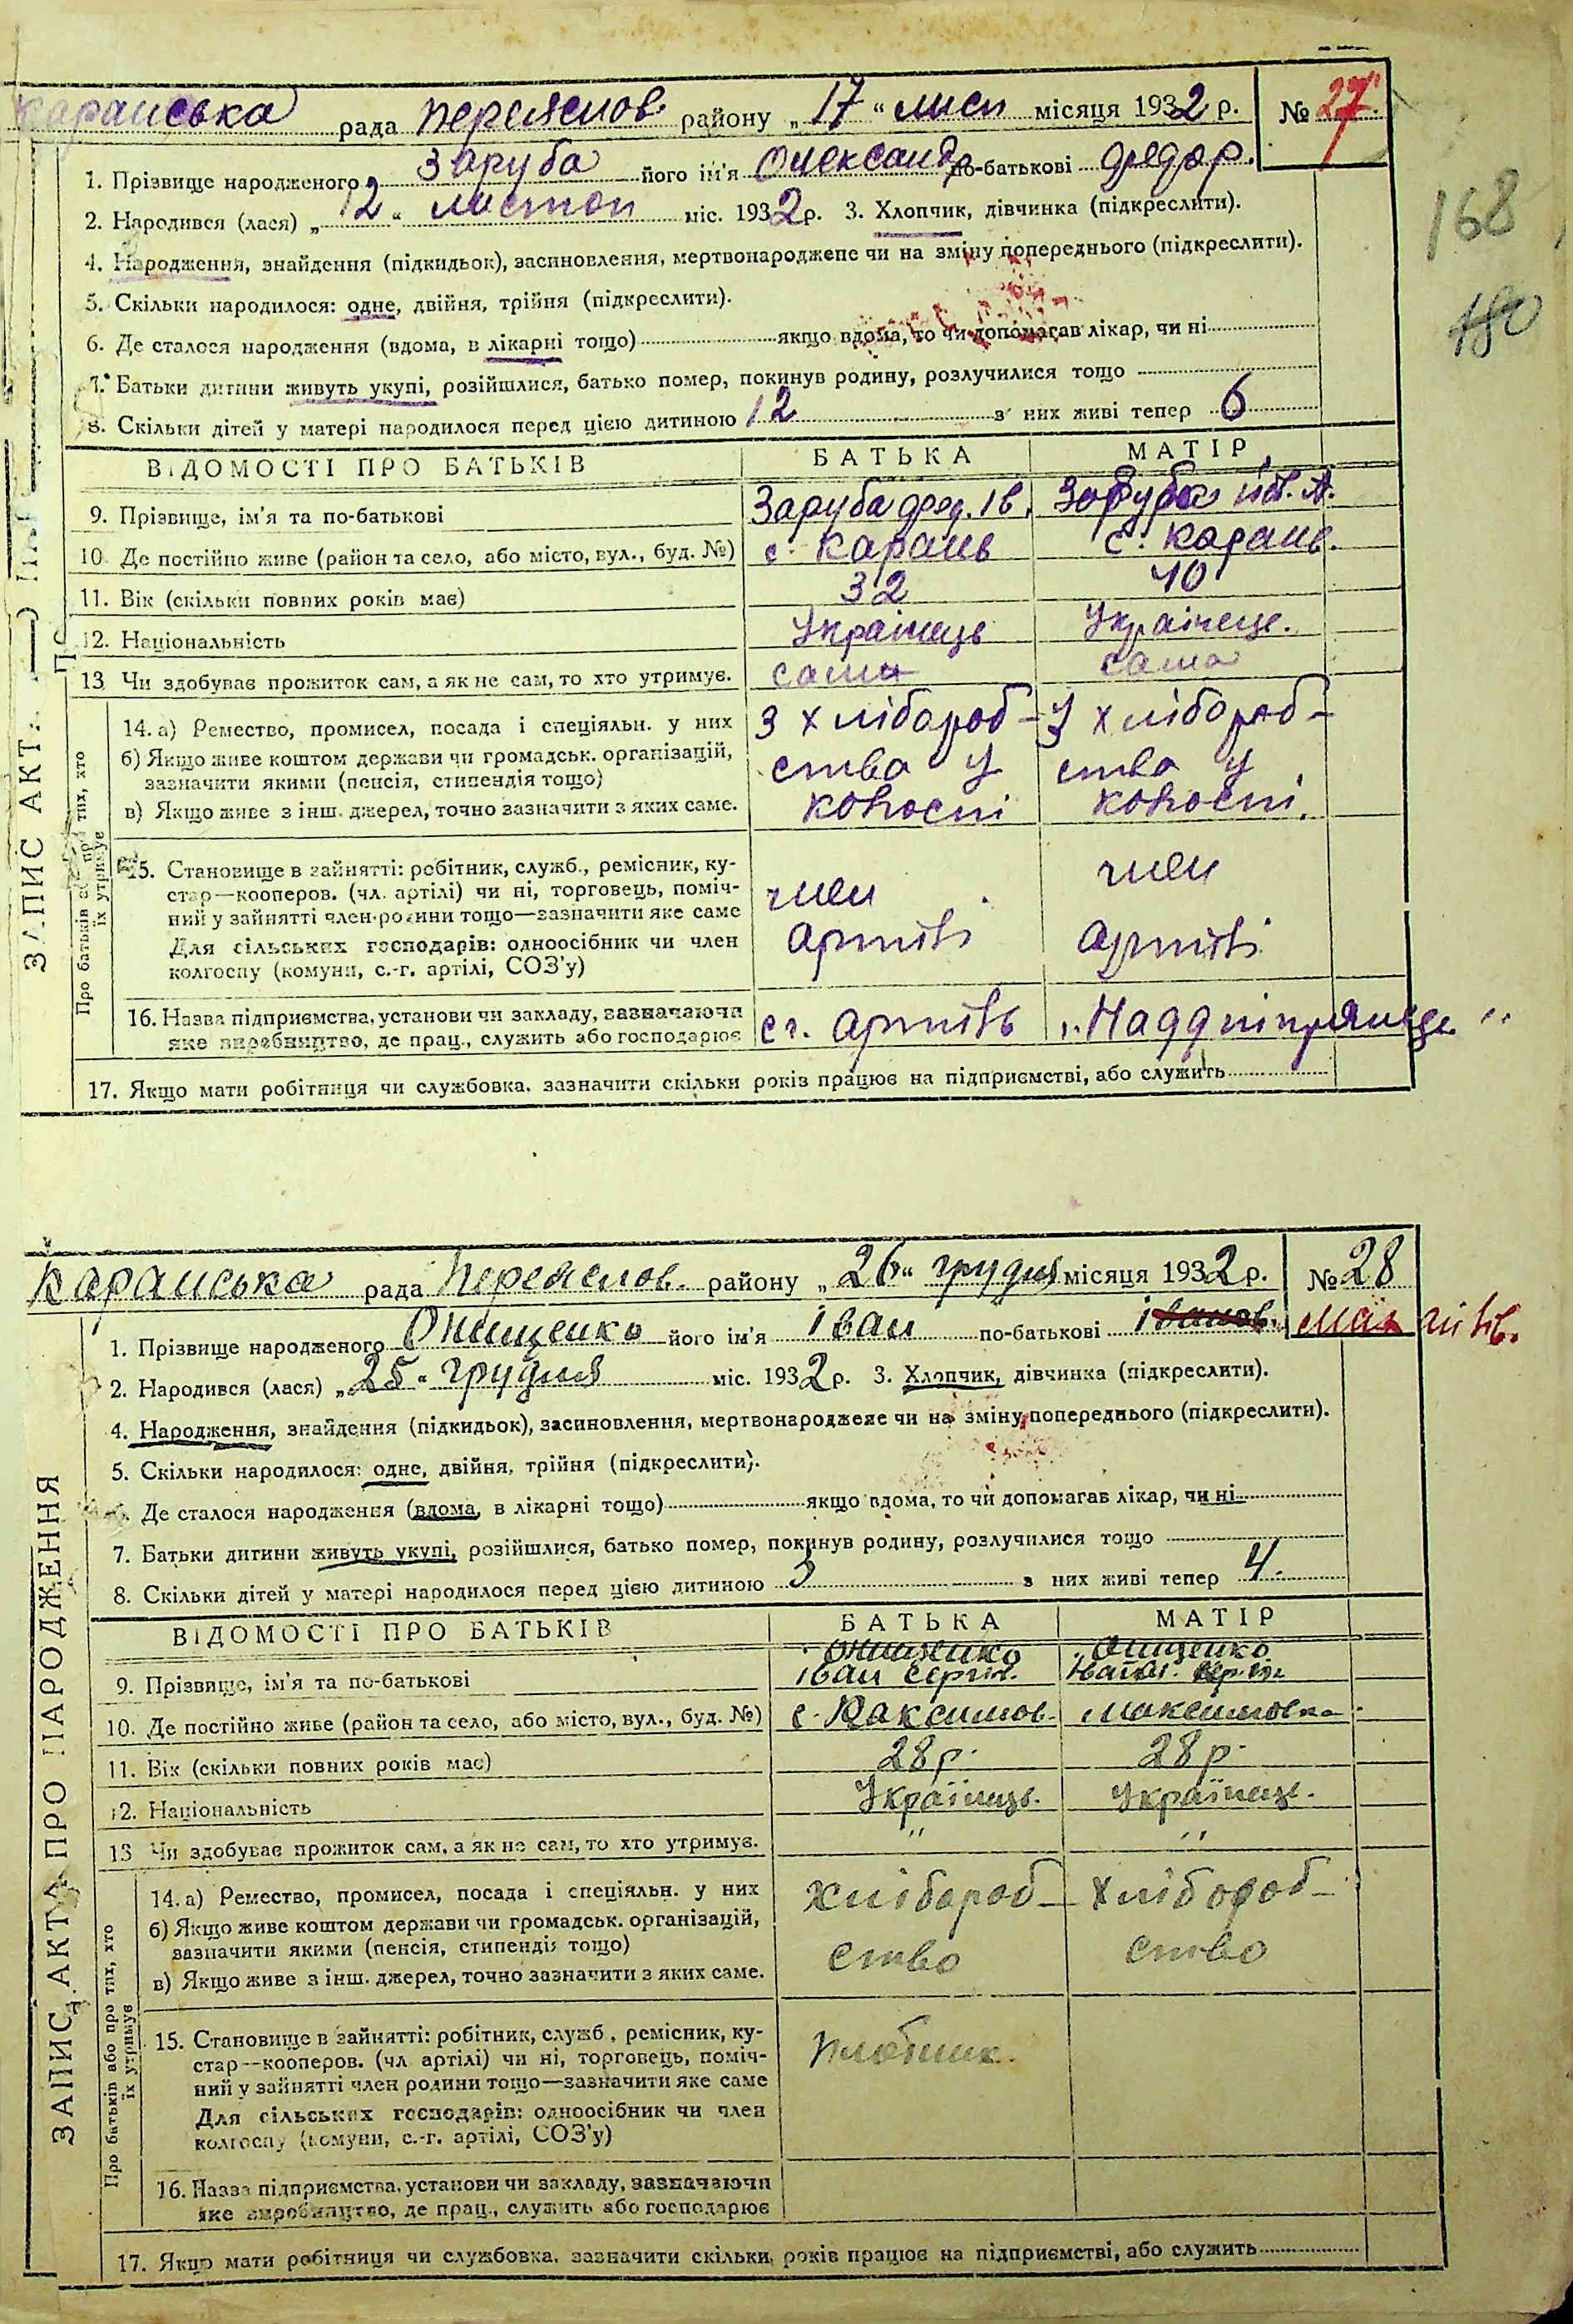 Каранська рада Переяслов. району „17“ лист місяця 1932 р. № 27
1. Прізвище народженого Заруба його ім'я Олександр по-батькові Федор.
2. Народився (лася) „12“ листоп міс. 1932 р. 3. Хлопчик, дівчинка (підкреслити).
4. Народження, знайдення (підкидьок), засиновлення, мертвонароджене чи на зміну попереднього (підкреслити).
5. Скільки народилося: одне, двійня, трійня (підкреслити).
6. Де сталося народження (вдома, в лікарні тощо) якщо вдома, то чи допомагав лікар, чи ні
7. Батьки дитини живуть укупі, розійшлися, батько помер, покинув родину, розлучилися тощо
8. Скільки дітей у матері народилося перед цією дитиною 12 з них живі тепер 6
168
180
ВІДОМОСТІ ПРО БАТЬКІВ БАТЬКА МАТІР
9. Прізвище, ім'я та по-батькові Заруба Фед. Ів. Заруба
10. Де постійно живе (район та село, або місто, вул., буд. №) с. Карань с. Карань.
11. Вік (скільки повних років має) 32 40
12. Національність Українець Українець.
13. Чи здобував прожиток сам, а як не сам, то хто утримує. сама
14. а) Ремество, промисел, посада і спеціяльн. у них З хлібороб- З хлібороб-
б) Якщо живе коштом держави чи громадськ. організацій, ства у ства у
зазначити якими (пенсія, стипендія тощо)
в) Якщо живе з інш. джерел, точно зазначити з яких саме. колгоспі колгоспі.
15. Становище в зайнятті: робітник, служб., ремісник, ку-
стар—кооперов. (чл. артілі) чи ні, торговець, поміч- член член
ний у зайнятті член родини тощо—зазначити яке саме
Для сільських господарів: одноосібник чи член артілі артілі
колгоспу (комуни, с.-г. артілі, СОЗ'у)
16. Назва підприємства, установи чи закладу, зазначаючи с г. артіль „Наддніпрянець“
яке виробництво, де прац., служить або господарює
17. Якщо мати робітниця чи службовка, зазначити скільки років працює на підприємстві, або служить
Про батьків або про тих, хто
їх утримує
ЗАПИС АКТ
Каранська рада Переяслов. району „26“ грудня місяця 1932 р. № 28
1. Прізвище народженого Онищенко його ім'я Іван по-батькові Іванов.
2. Народився (лася) „25“ грудня міс. 1932 р. 3. Хлопчик, дівчинка (підкреслити).
4. Народження, знайдення (підкидьок), засиновлення, мертвонароджене чи на зміну попереднього (підкреслити).
5. Скільки народилося: одне, двійня, трійня (підкреслити).
6. Де сталося народження (вдома, в лікарні тощо) якщо вдома, то чи допомагав лікар, чи ні
7. Батьки дитини живуть укупі, розійшлися, батько помер, покинув родину, розлучилися тощо
8. Скільки дітей у матері народилося перед цією дитиною з них живі тепер 4.
ВІДОМОСТІ ПРО БАТЬКІВ БАТЬКА МАТІР
Онищенко Онищенко
9. Прізвище, ім'я та по-батькові Іван Сергів.
10. Де постійно живе (район та село, або місто, вул., буд. №) с. Максимов. Максимовка
11. Вік (скільки повних років має) 28 р. 28 р.
12. Національність Українець. Українець.
13. Чи здобуває прожиток сам, а як не сам, то хто утримує. " "
14. а) Ремество, промисел, посада і спеціяльн. у них хлібороб- хлібороб-
б) Якщо живе коштом держави чи громадськ. організацій,
зазначити якими (пенсія, стипендія тощо) ство ство
в) Якщо живе з інш. джерел, точно зазначити з яких саме.
15. Становище в зайнятті: робітник, служб., ремісник, ку-
стар—кооперов. (чл. артілі) чи ні, торговець, поміч-
ний у зайнятті член родини тощо—зазначити яке саме
Для сільських господарів: одноосібник чи член
колгоспу (комуни, с.-г. артілі, СОЗ'у)
16. Назва підприємства, установи чи закладу, зазначаючи
яке виробництво, де прац., служить або господарює
17. Якщо мати робітниця чи службовка, зазначити скільки років працює на підприємстві, або служить
Про батьків або про тих, хто
їх утримує
ЗАПИС АКТА ПРО НАРОДЖЕННЯ